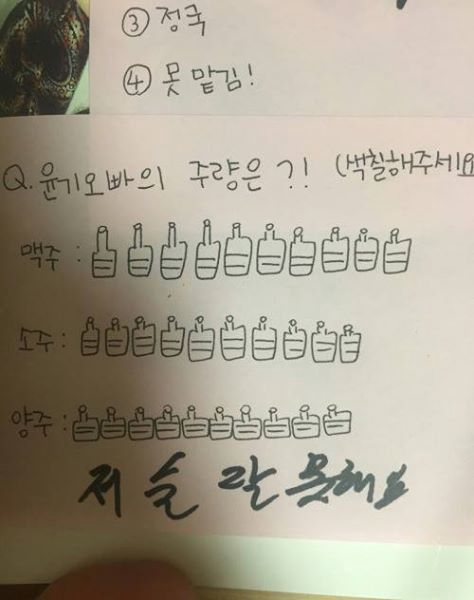 ③ 정국
④ 못 맡김!
Q. 윤기오빠의 주량은?! (색칠해주세요
맥주 :
소주 :
양주 :
저 술 잘 못해요